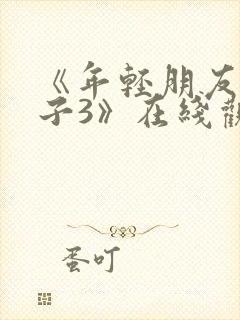 《年轻朋友
子3》在线
蛋叮